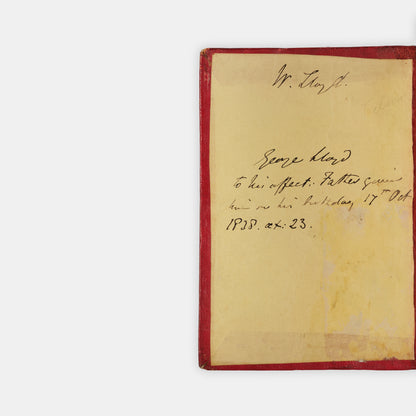 W. Lloyd.
George Lloyd
to his affect: Father given
him on his birthday 17th Oct
1838. æt: 23.